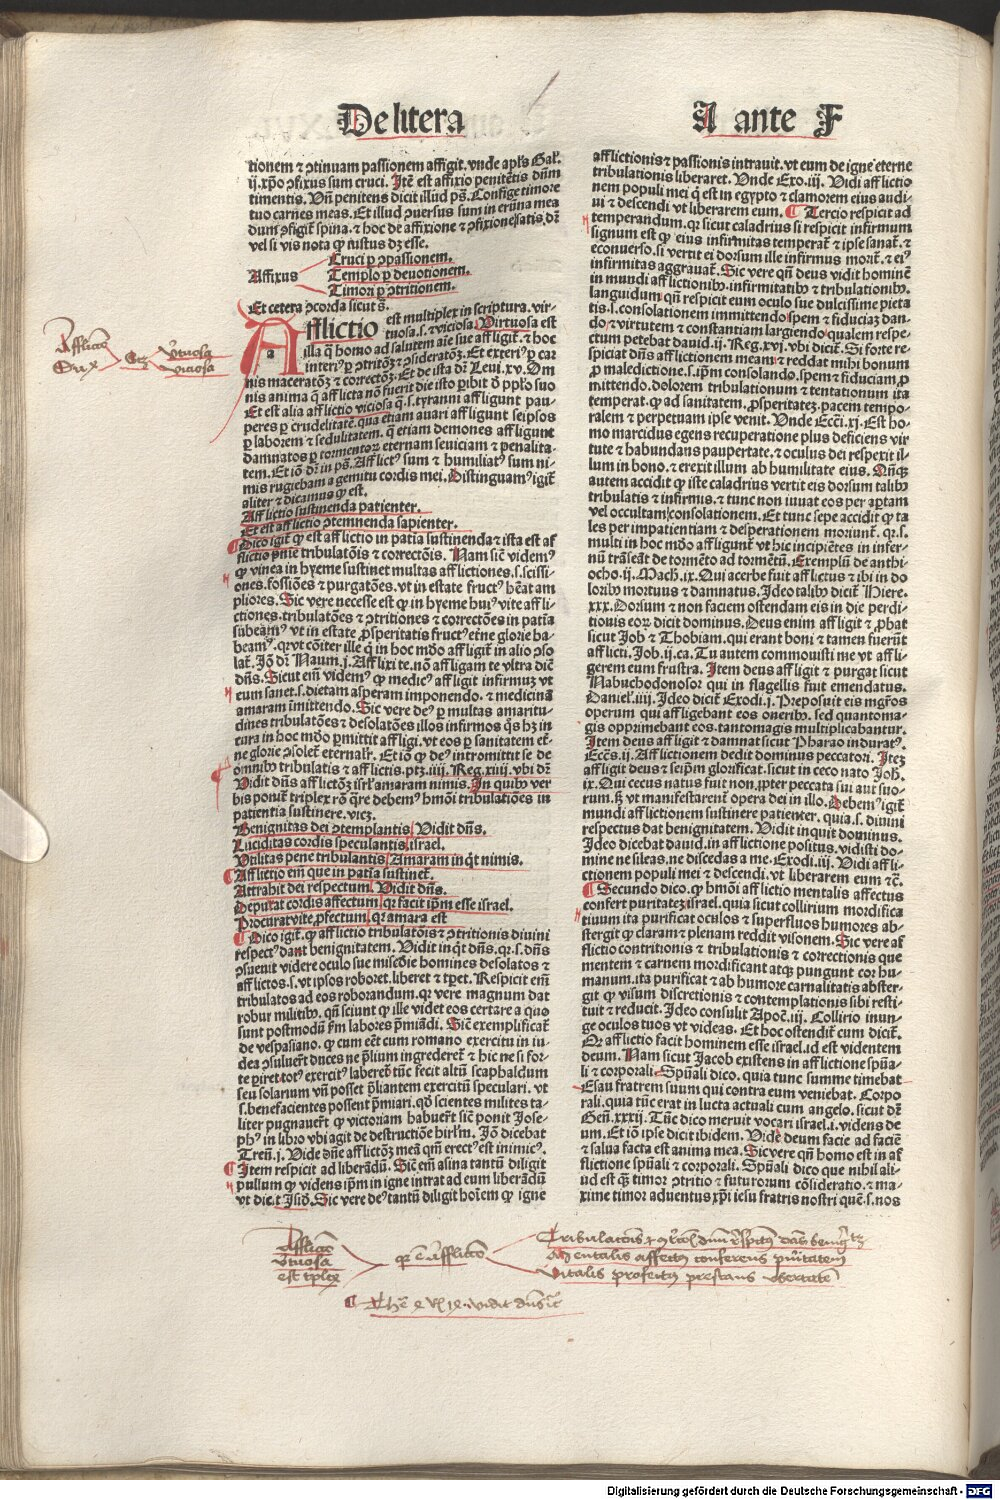 De litera
A ante F
tionem ⁊ ↄtinuam passionem affigit. vnde apl's Gal'.
ij. xp̄o ↄfixus sum cruci. Itē est affixio penitētis dn̄m
timentis. Vn̄ penitens dicit illud ps̄. Confige timore
tuo carnes meas. Et illud ↄuersus sum in erūna mea
dum ↄfigit̄ spina. ⁊ hoc de affixione ⁊ ↄfixione satis. dʒ
vel si vis nota ꝙ iustus dʒ esse.
Affixus
Cruci ꝑ ↄpassionem.
Templo ꝑ deuotionem.
Timori ꝑ ↄtritionem.
Et cetera ↄcorda sicut s̄.
Afflictio est multiplex in scriptura. vir-
tuosa. s. ⁊ viciosa. Virtuosa est
illa q̄ homo ad salutem aīe sue affligit̄. ⁊ hoc
interi⁹ ꝑ ↄtritōʒ ⁊ ↄsideratōʒ. Et exteri⁹ ꝑ car
nis maceratōʒ ⁊ correctōʒ. Et de ista dr̄ Leui. xv. Om
nis anima q̄ afflicta nō fuerit die isto ꝑibit d̄ pp̄lo suo
Et est alia afflictio viciosa q̄. s. tyranni affligunt pau-
peres ꝑ crudelitatē. qua etiam auari affligunt seipsos
ꝑ laborem ⁊ sedulitatem. q̄ etiam demones affligunt
damnatos ꝑ tormentoꝝ eternam seuiciam ⁊ penalita-
tem. Et iō dr̄ in ps̄. Afflict⁹ sum ⁊ humiliat⁹ sum ni-
mis rugiebam a gemitu cordis mei. Distinguam⁹ igit̄
aliter ⁊ dicamus ꝙ est.
Afflictio sustinenda patienter.
Et est afflictio ↄtemnenda sapienter.
Dico igit̄ ꝙ est afflictio in patīa sustinenda ⁊ ista est af
flictio pn̄ie tribulatōis ⁊ correctōis. Nam sic̄ videm⁹
ꝙ vinea in hyeme sustinet multas afflictiones. s. scissi-
ones. fossiōes ⁊ purgatōes. vt in estate fruct⁹ h̄eat am
pliores. Sic vere necesse est ꝙ in hyeme hui⁹ vite affli-
ctiones. tribulatōes ⁊ ↄtritiones ⁊ correctōes in patīa
subeam⁹ vt in estate ꝓsperitatis fruct⁹ etn̄e glorie ha-
beam⁹. qr vt cōiter ille q̄ in hoc mō̄o affligit̄ in alio ↄso
lat̄. Iō dr̄ Naum. j. Afflixi te. nō affligam te vltra dic̄
dn̄s. Sicut em̄ videm⁹ ꝙ medic⁹ affligit infirmuʒ vt
eum sanet. s. dietam asperam imponendo. ⁊ medicinā
amaram īmittendo. Sic vere de⁹ ꝑ multas amaritu-
dines tribulatōes ⁊ desolatōes illos infirmos qs hʒ in
cura in hoc mō̄o ꝑmittit affligi. vt eos ꝑ sanitatem et̄-
ne glorie ↄsolet̄ eternalr̄. Et iō ꝙ de⁹ intromittit se de
omnibꝰ tribulatis ⁊ afflictis. ptʒ. iiij. Reg. xiiij. vbi dr̄
Vidit dn̄s afflictōʒ isrl' amaram nimis. In quibꝰ ver
bis ponit̄ triplex rō q̄re debem⁹ hmōi tribulatiōes in
patientia sustinere. vicʒ.
Benignitas dei ↄtemplantis. Vidit dn̄s.
Luciditas cordis speculantis. israel.
Vtilitas pene tribulantis. Amaram inq̄t nimis.
Afflictio em̄ que in patīa sustinet̄.
Attrahit dei respectum. Vidit dn̄s.
Deputat cordis affectum. qr facit ip̄m esse israel.
Procurat vite ꝓfectum. qr amara est
Dico igit̄. ꝙ afflictio tribulatōis ⁊ ↄtritionis diuini
respect⁹ dant benignitatem. Vidit inq̄t dn̄s. qr. s. dn̄s
ↄsueuit videre oculo sue mīe homines desolatos ⁊
afflictos. s. vt ipsos roboret. liberet ⁊ tꝑet. Respicit em̄
tribulatos ad eos roborandum. qr vere magnum dat
robur militibꝰ. qn̄ sciunt ꝙ ille videt eos certare a quo
sunt postmodū ẜm labores p̄miādi. Sic̄ exemplificat̄
de vespasiano. ꝙ cum eēt cum romano exercitu in iu-
dea ↄsuluer̄t duces ne p̄lium ingrederet̄ ⁊ hic ne si for-
te ꝑiret tot⁹ exercit⁹ laberet̄ tūc fecit altū scaphaldum
seu solarium vn̄ posset p̄liantem exercitū speculari. vt
s. benefacientes possent p̄miari. qd̄ scientes milites ta-
liter pugnauer̄t ꝙ victoriam habuer̄t sic̄ ponit Jose-
ph⁹ in libro vbi agit de destructiōe hirl'm. Iō dicebat
Tren̄. j. Vide dn̄e afflictōʒ meā qm̄ erect⁹ est inimic⁹.
Item respicit ad liberādū. Sic̄ em̄ asina tantū diligit
pullum ꝙ videns ip̄m in igne intrat ad eum liberādū
vt dic̄t Isid̄. Sic vere de⁹ tantū diligit hoīem ꝙ igne
afflictionis ⁊ passionis intrauit. vt eum de igne eterne
tribulationis liberaret. Vnde Exo. iij. Vidi afflictio
nem populi mei q̄ est in egypto ⁊ clamorem eius audi-
ui ⁊ descendi vt liberarem eum. Tercio respicit ad
temperandum. qr sicut caladrius si respicit infirmum
signum est ꝙ eius infirmitas temperat̄ ⁊ ipse sanat̄. ⁊
econuerso. si vertit ei dorsum ille infirmus morit̄. ⁊ ei⁹
infirmitas aggrauat̄. Sic vere qn̄ deus vidit hominē
in mundi afflictionibꝰ. infirmitatibꝰ ⁊ tribulationibꝰ.
languidum qn̄ respicit eum oculo sue dulcissime pieta
tis. s. consolationem immittendo spem ⁊ fiduciaʒ dan-
do ⁊ virtutem ⁊ constantiam largiendo qualem respe-
ctum petebat dauid. ij. Reg. xvi. vbi dicit̄. Si forte re-
spiciat dn̄s afflictionem meam ⁊ reddat mihi bonum
ꝓ maledictione. s. ip̄m consolando. spem ⁊ fiduciam ꝓ
mittendo. dolorem tribulationum ⁊ tentationum ita
temperat. ꝙ ad sanitatem. ꝓsperitateʒ. pacem tempo-
ralem ⁊ perpetuam ipse venit. Vnde Ecci. xj. Est ho-
mo marcidus egens recuperatione plus deficiens vir
tute ⁊ habundans paupertate. ⁊ oculus dei respexit il-
lum in bono. ⁊ erexit illum ab humilitate eius. Qn̄qꝫ
autem accidit ꝙ iste caladrius vertit eis dorsum talibꝰ
tribulatis ⁊ infirmis. ⁊ tunc non iuuat eos per aptam
vel occultam consolationem. Et tunc sepe accidit ꝙ ta
les per impatientiam ⁊ desperationem moriunt̄. qr. s.
multi in hoc mō̄o affligunt̄ vt hic incipiētes in infer-
nū trāseāt de tormēto ad tormētū. Exemplū de anthi-
ocho. ij. Mach. ix. Qui acerbe fuit afflictus ⁊ ibi in do
loribꝰ mortuus ⁊ damnatus. Ideo talibꝰ dicit̄ Hiere.
xxx. Dorsum ⁊ non faciem ostendam eis in die perdi-
tionis eoꝝ dicit dominus. Deus enim affligit ⁊ ꝓbat
sicut Job ⁊ Thobiam. qui erant boni ⁊ tamen fuerūt
afflicti. Job. ij. ca. Tu autem commouisti me vt affli-
gerem eum frustra. Item deus affligit ⁊ purgat sicut
Nabuchodonosor qui in flagellis fuit emendatus.
Daniel. iiij. Ideo dicit̄ Exodi. j. Preposuit eis mgr̄os
operum qui affligebant eos oneribꝰ. sed quantoma-
gis opprimebant eos. tantomagis multiplicabantur.
Item deus affligit ⁊ damnat sicut Pharao indurat⁹.
Ecc̄s. ij. Afflictionem dedit dominus peccatori. Iteʒ
affligit deus ⁊ seip̄m glorificat. sicut in ceco nato Joh̄.
ix. Qui cecus natus fuit non ꝓpter peccata sui aut suo-
rum. sʒ vt manifestarent̄ opera dei in illo. Debem⁹ igit̄
mundi afflictionem sustinere patienter. quia. s. diuini
respectus dat benignitatem. Vidit inquit dominus.
Ideo dicebat dauid. in afflictione positus. vidisti do-
mine ne sileas. ne discedas a me. Exodi. iij. Vidi affli-
ctionem populi mei ⁊ descendi. vt liberarem eum ⁊c̄.
Secundo dico. ꝙ hmōi afflictio mentalis affectus
confert puritateʒ israel. quia sicut collirium mordifica
tiuum ita purificat oculos ⁊ superfluos humores ab-
stergit ꝙ claram ⁊ plenam reddit visonem. Sic vere af
flictio contritionis ⁊ tribulationis ⁊ correctionis que
mentem ⁊ carnem mordificant atqꝫ pungunt cor hu-
manum. ita purificat ⁊ ab humore carnalitatis abster-
git ꝙ visum discretionis ⁊ contemplationis sibi resti
tuit ⁊ reducit. Ideo consulit Apoc̄. iij. Collirio inun-
ge oculos tuos vt videas. Et hoc ostendit̄ cum dicit̄.
Qr afflictio facit hominem esse israel. id est videntem
deum. Nam sicut Jacob existens in afflictione spūa-
li ⁊ corporali. Spūali dico. quia tunc summe timebat
Esau fratrem suum qui contra eum veniebat. Corpo
rali. quia tūc erat in lucta actuali cum angelo. sicut dr̄
Gen̄. xxxij. Tūc dico meruit vocari israel. i. videns de
um. Et iō ipse dicit ibidem. Vidē deum facie ad faciē
⁊ salua facta est anima mea. Sic vere qn̄ homo est in af
flictione spūali ⁊ corporali. Spūali dico que nihil ali-
ud est q̄ꝫ timor ↄtritio ⁊ futurorum cōsideratio. ⁊ ma-
xime timor aduentus xp̄i iesu fratris nostri quē. s. nos
Afflictio
Duplex
Virtuosa
viciosa
Afflictio
virtuosa
est tplex
Mentalis affectus conferens puritatem
Vitalis profectus prestans vbertatē
vidit dn̄s
Digitalisierung gefördert durch die Deutsche Forschungsgemeinschaft - DFG